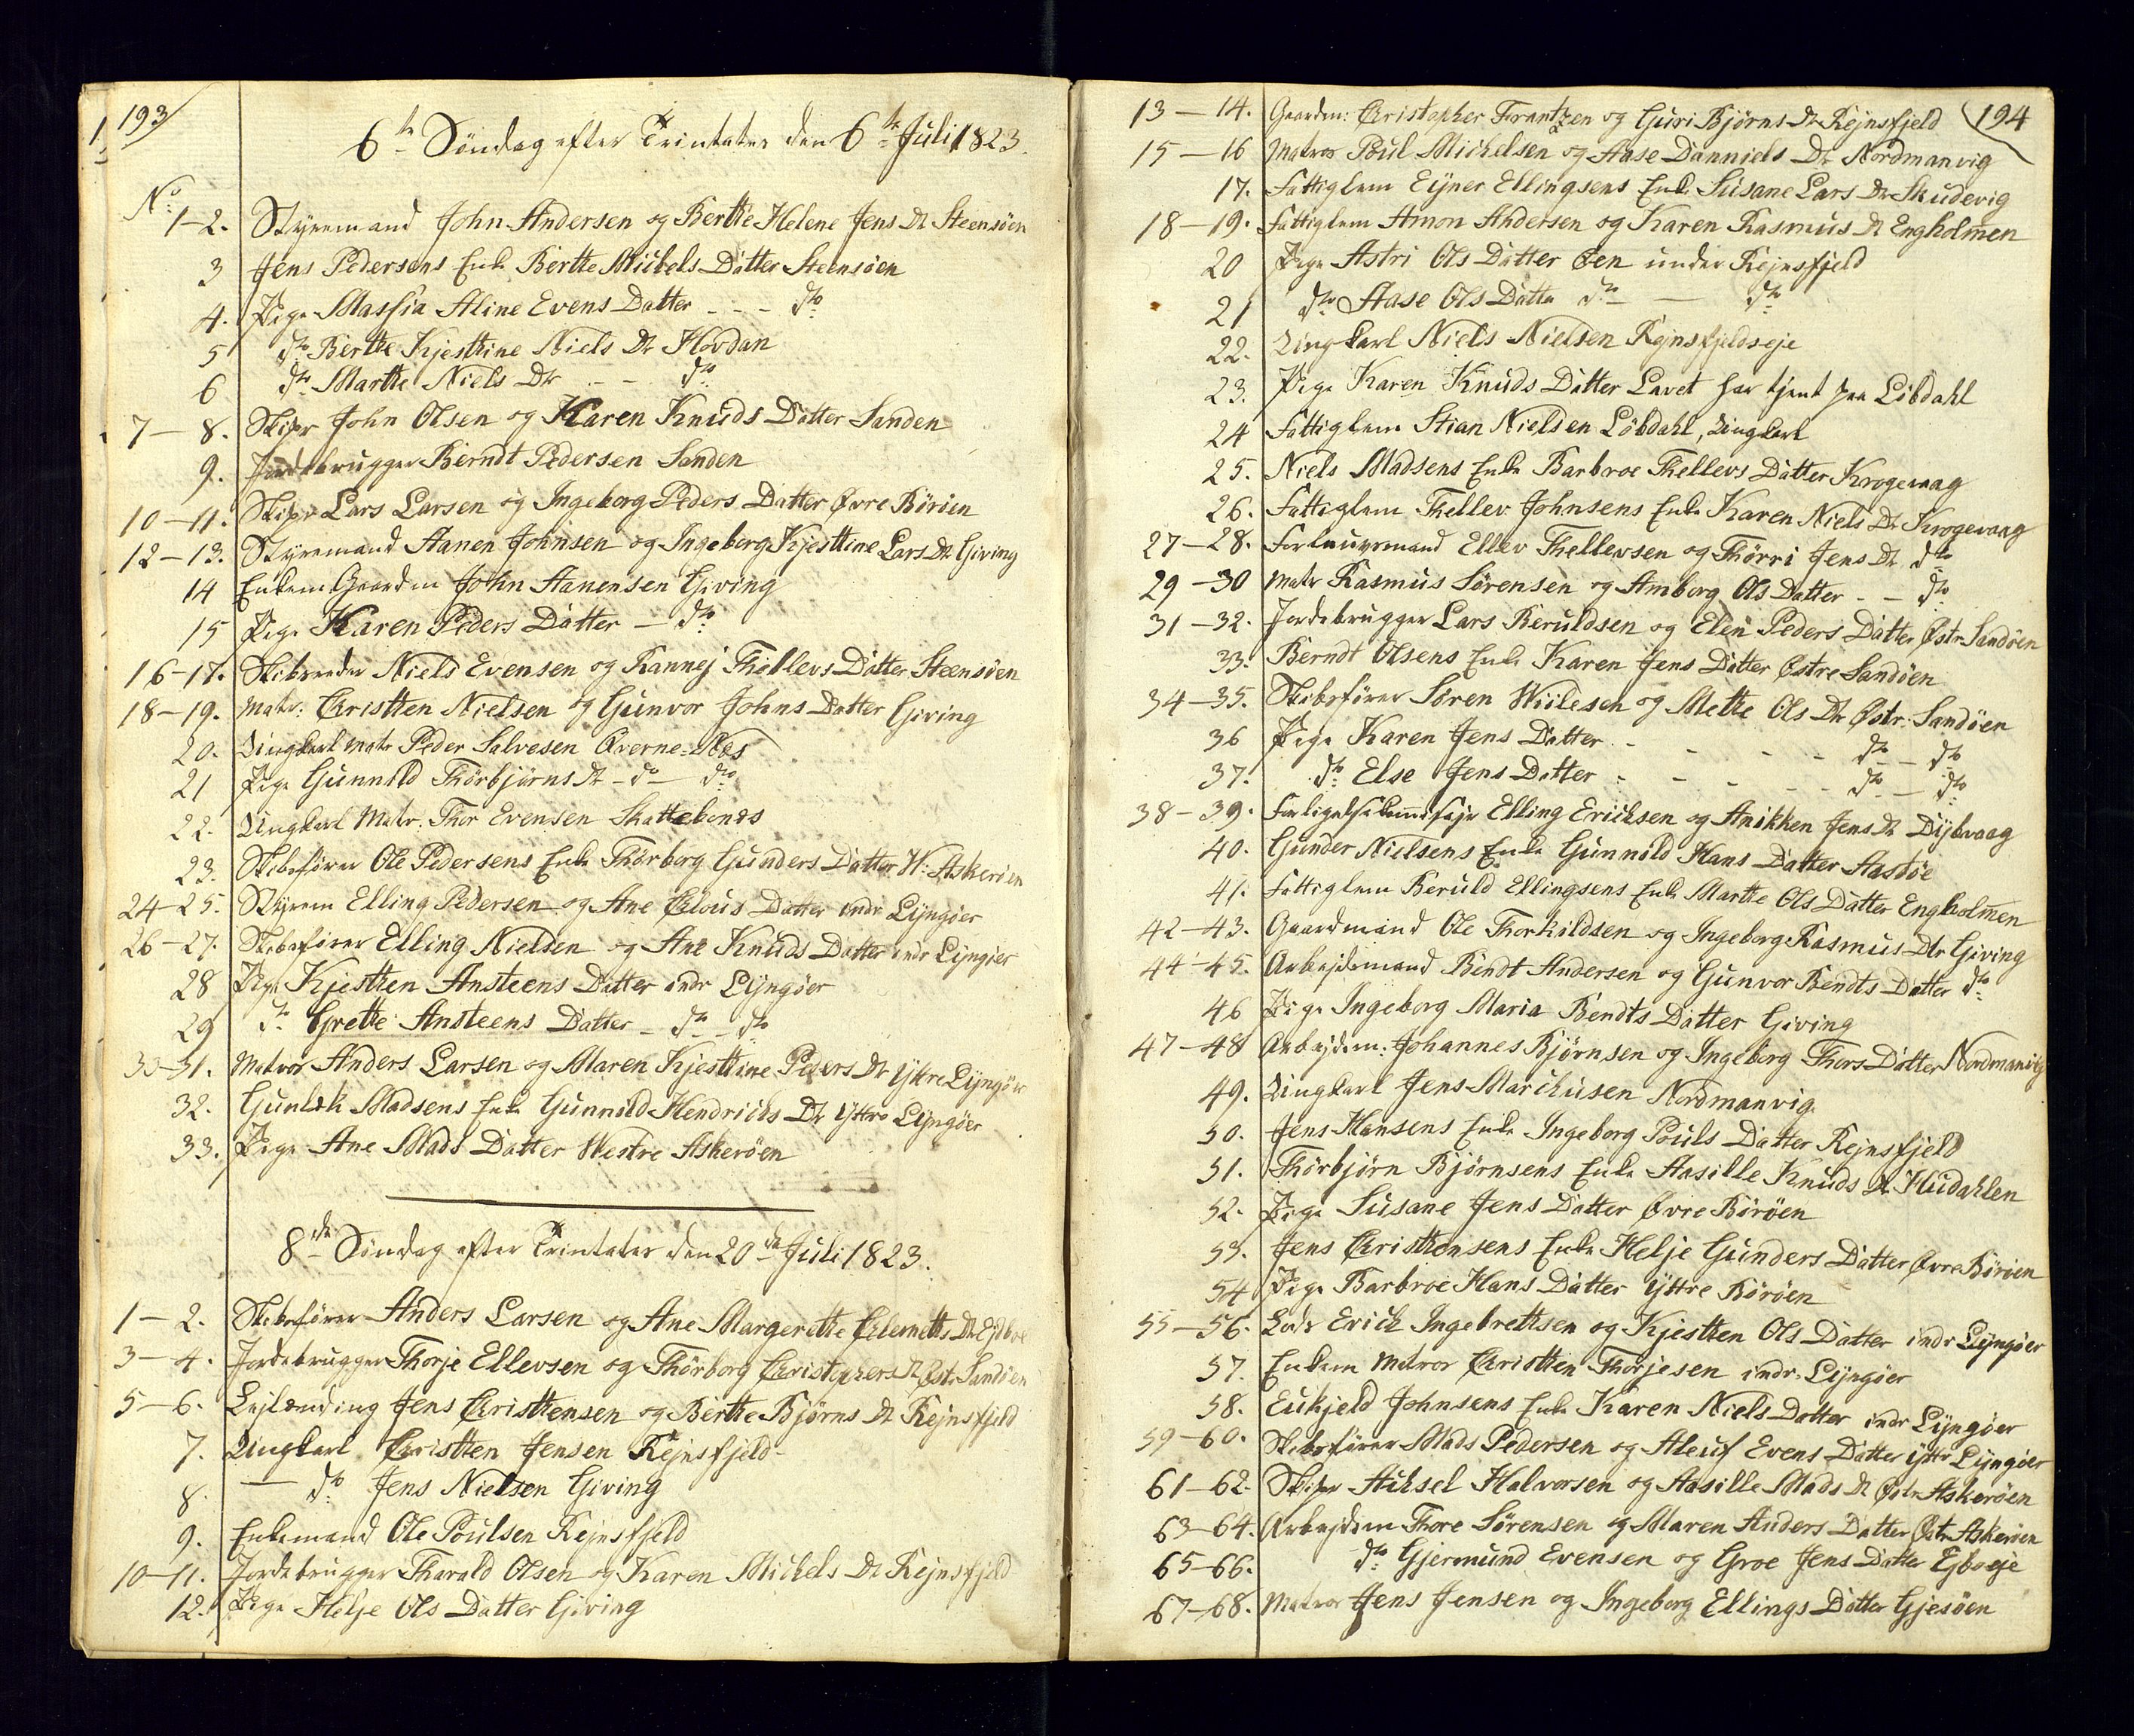 193
6te Söndag efter Trinitatis den 6te Juli 1823.
No
1-2. Styremand John Andersen og Berthe Helene Jens Dt Steensöen
3 Jens Pedersens Enke Berthe Michels Datter Steensöen
4. Pige Massia Aline Evens Datter - - - dto
5 dto Berthe Kjesttine Niels Dtr Hovdan
6 dto Marthe Niels Dtr - - dto
7-8. Skipr John Olsen og Karen Knuds Datter Sanden
9. Jordebrugger Berndt Pedersen Sanden
10-11. Skipr Lars Larsen og Ingeborg Peders Datter Øvre Böröen
12-13. Styremand Aanen Johnsen og Ingeborg Kjesttine Lars Dt Giving
14 Enkem Gaardm John Aanensen Giving
15 Pige Karen Peders Datter - dto
16-17. Skibsreder Niels Evensen og Rannej Thellevs Datter Steensöen
18-19. Matr: Christten Nielsen og Gunvor Johns Datter Giving
20. Ungkarl Matr Peder Salvesen Qverne-Næs
21 Pige Gunnild Thörbjörns Dt - do - dto
22. Ungkarl Matr. Thor Evensen Skattebonds
23. Skibsförer Ole Pedersens Enke Thörborg Gunders Datter W: Askeröen
24-25. Styrem Elling Pedersen og Ane Clous Datter indr Lyngöer
26-27. Skibsförer Elling Nielsen og Ane Knuds Datter indr Lyngöer
28 Pige Kjestten Ansteens Datter indr Lyngöer
29 dto Grethe Ansteens Datter - dto - dto
30-31. Matros Anders Larsen og Maren Kjesttine Peders Dtr Yttre Lyngöer
32. Gunlek Madsens Enke Gunnild Hendrichs Dtr Yttre Lyngöer
33. Pige Ane Mads Datter Westre Askeröen
8de Söndag efter Trinitatis den 20de Juli 1823.
1-2. Skibsförer Anders Larsen og Ane Margerethe Clemetts Dt
3-4. Jordebrugger Thorje Ellevsen og Thörborg Christophers Dt Østr Sandöen
5-6. Lejlænding Jens Christtensen og Berthe Björns Dt Rejnsfjeld
7. Ungkarl Christten Jensen Rejnsfjeld
8. - dto Jens Nielsen Giving
9. Enkemand Ole Poulsen Rejnsfjeld
10-11. Jordebrugger Tharald Olsen og Karen Michels Dt Rejnsfjeld
12. Pige Helje Ols Datter Giving
194
13-14. Gaardm: Christopher Frantzen og Guri Björns Dtr Rejnsfjeld
15-16 Matros Poul Michelsen og Aase Danniels Dtr Nordmanvig
17. Fattiglem Ejner Ellingsens Enke Susane Lars Dtr Skudevig
18-19. Fattiglem Amon Andersen og Karen Rasmus Dt Engholmen
20 Pige Astri Ols Datter Øen under Rejnsfjeld
21 dto Aase Ols Datter dto - dto
22. Ungkarl Niels Nielsen Rejnsfjeldseje
23. Pige Karen Knuds Datter Lavet har tjent paa Löbdahl
24 Fattiglem Stian Nielsen Löbdahl, Ungkarl
25. Niels Madsens Enke Barbroe Thellevs Datter Krogevaag
26. Fattiglem Thellev Johnsens Enke Karen Niels Dt Krogevaag
27-28. Ellev Thellevsen og Thörri Jens Dt dto
29-30 Matr Rasmus Sörensen og Amborg Ols Datter - - dto
31-32. Jordebrugger Lars Beruldsen og Elen Peders Datter Østr Sandöen
33. Berndt Olsens Enke Karen Jens Datter Østre Sandöen
34-35. Skibsförer Sören Wiilesen og Mette Ols Dtr Østr: Sandöen
36 Pige Karen Jens Datter - - - - dto - dto
37. dto Else Jens Datter - - - - dto - dto
38-39. Elling Erichsen og Anikken Jens Dt Dybvaag
40. Gunder Nielsens Enke Gunnild Hans Datter Aastöe
41. Fattiglem Beruld Ellingsens Enke Marthe Ols Datter Engholmen
42-43. Gaardmand Ole Thorkildsen og Ingeborg Rasmus Dtr Giving
44-45. Arbejdsmand Bendt Andersen og Gunvor Bendts Datter dto
46 Pige Ingeborg Maria Bendts Datter Giving
47-48 Arbejdsm: Johannes Björnsen og Ingeborg Thors Datter Nordmanvig
49. Ungkarl Jens Marchusen Nordmanvig
50. Jens Hansens Enke Ingeborg Pouls Datter Rejnsfjeld
51. Thörbjörn Björnsens Enke Aasille Knuds Dt Hudahlen
52. Pige Susane Jens Datter Øvre Böröen
53. Jens Christtensens Enke Helje Gunders Datter Øvre Böröen
54 Pige Barbroe Hans Datter Yttre Böröen
55-56. Lods Erich Ingebrethsen og Kjestten Ols Datter indr Lyngöer
57. Enkem Matros Christten Thorjesen indr Lyngöer
58. Enkjeld Johnsens Enke Karen Niels Datter indr Lyngöer
59-60. Skibsförer Mads Pedersen og Aleuf Evens Datter yttr Lyngöer
61-62. Skipr Achsel Halvorsen og Aasille Mads Dt Østr Askeröen
63-64. Arbejdsm Thore Sörensen og Maren Anders Datter Østr Askeröen
65-66. dto Gjermund Evensen og Groe Jens Datter Ejboeje
67-68. Matros Jens Jensen og Ingeborg Ellings Datter Gjesöen